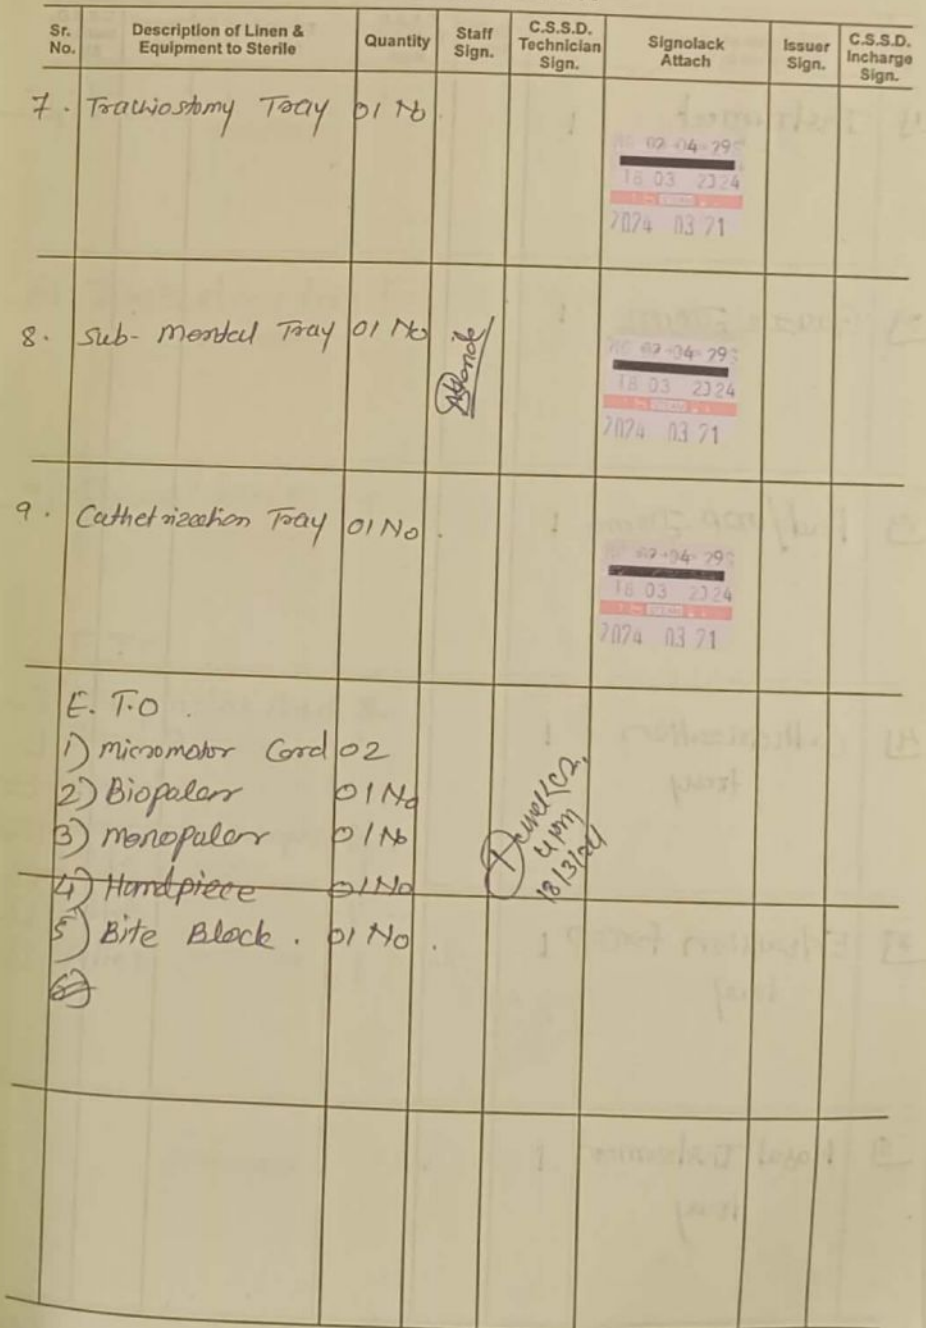 Sr. No. Description of Linen & Equipment to Sterile Quantity Staff Sign. C.S.S.D. Technician Sign. Signolack Attach Issuer Sign. C.S.S.D. Incharge Sign.
7. Trachiostomy Tray 01 No
02-04-29
18 03 2024
2024 03 21
8. Sub-Mental Tray 01 No
02-04-29
18 03 2024
STEAM
2024 03 21
9. Cathetrization Tray 01 No.
02-04-29
18 03 2024
STEAM
2024 03 21
E.T.O.
1) micromotor Cord 02
2) Biopolar 01 No
3) monopolar 01 No
4) Handpiece 01 No
5) Bite Block. 01 No.
4 pm
18/3/24